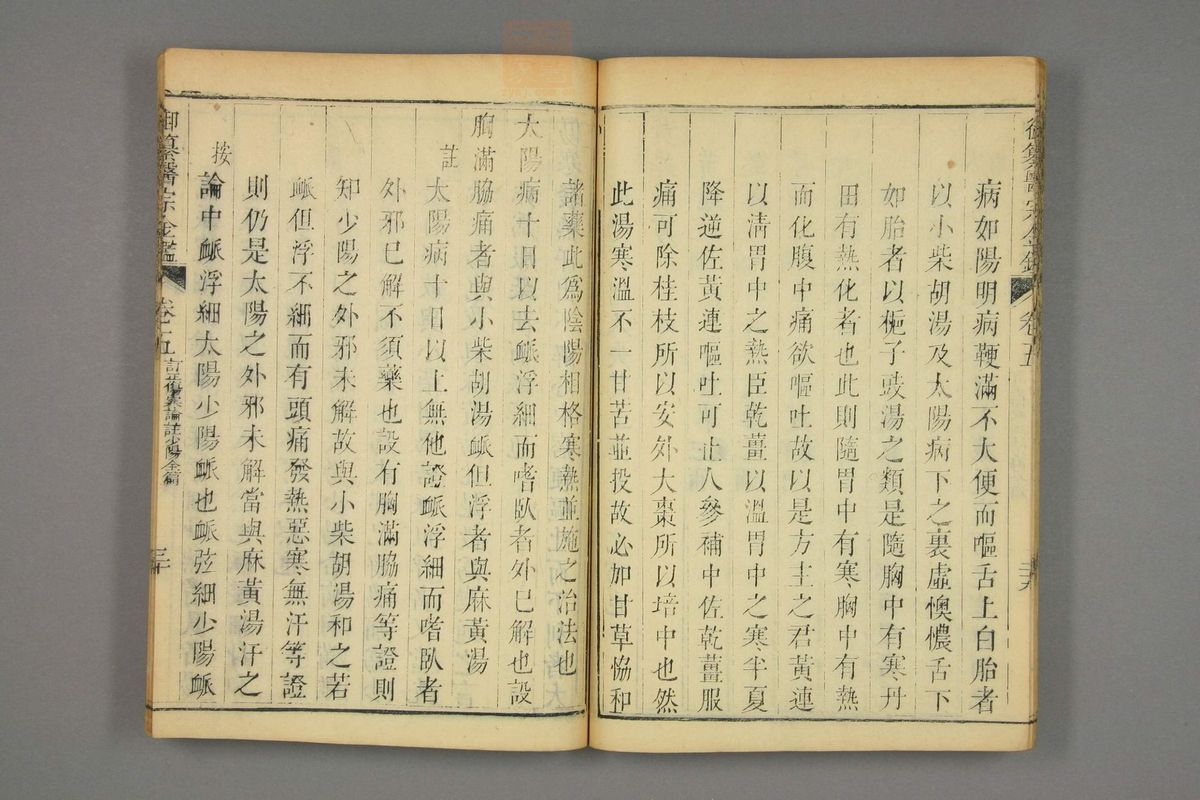 御纂醫宗金鑑 卷五 二十九
病如陽明病鞕滿不大便而嘔舌上白胎者
以小柴胡湯及太陽病下之裏虛懊憹舌下
如胎者以梔子豉湯之類是隨胸中有寒丹
田有熱化者也此則隨胃中有寒胸中有熱
而化腹中痛欲嘔吐故以是方主之君黃連
以清胃中之熱臣乾薑以溫胃中之寒半夏
降逆佐黃連嘔吐可止人參補中佐乾薑服
痛可除桂枝所以安外大棗所以培中也然
此湯寒溫不一甘苦並投故必加甘草恊和
諸藥此爲陰陽相格寒熱並施之治法也
太陽病十日以去䘑浮細而嗜臥者外已解也設
胸滿脇痛者與小柴胡湯䘑但浮者與麻黃湯
註 太陽病十日以上無他證䘑浮細而嗜臥者
外邪已解不須藥也設有胸滿脇痛等證則
知少陽之外邪未解故與小柴胡湯和之若
䘑但浮不細而有頭痛發熱惡寒無汗等證
則仍是太陽之外邪未解當與麻黃湯汗之
按 論中䘑浮細太陽少陽䘑也䘑弦細少陽䘑
御纂醫宗金鑑 卷五 訂正傷寒論註少陽全篇 三十